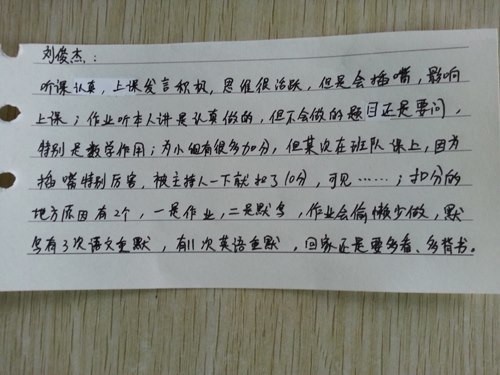 刘俊杰：
听课认真，上课发言积极，思维很活跃，但是会插嘴，影响
上课；作业听本人讲是认真做的，但不会做的题目还是要问，
特别是数学作用；为小组有很多加分，但某次在班队课上，因为
插嘴特别厉害，被主持人一下就扣了10分，可见……；扣分的
地方原因有2个，一是作业，二是默写，作业会偷懒少做，默
写有3次语文重默，有11次英语重默，回家还是要多看、多背书。